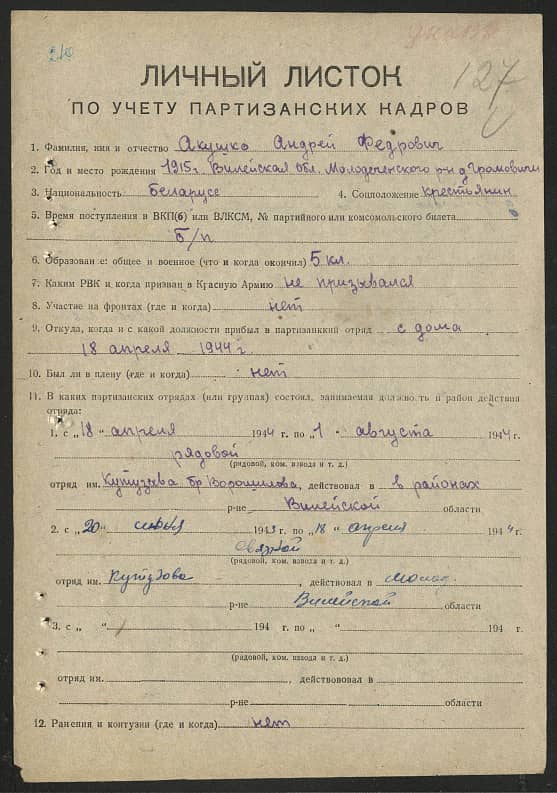 210
127
ЛИЧНЫЙ ЛИСТОК
ПО УЧЕТУ ПАРТИЗАНСКИХ КАДРОВ
1. Фамилия, имя и отчество Акушко Андрей Федрович
2. Год и место рождения 1915г. Вилейская обл. Молодеченского р-н д. Громовичи
3. Национальность Беларусс 4. Соцположение крестьянин
5. Время поступления в ВКП(б) или ВЛКСМ, № партийного или комсомольского билета
Б/п
6. Образован е: общее и военное (что и когда окончил) 5 кл.
7. Каким РВК и когда призван в Красную Армию не призывался
8. Участие на фронтах (где и когда) нет
9. Откуда, когда и с какой должности прибыл в партизанккий отряд с дома
18 апреля 1944 г.
10. Был ли в плену (где и когда) нет
11. В каких партизанских отрядах (или группах) состоял, занимаемая должно ть и район действия
отряда:
1. с „18" апреля 1944 г. по „1" августа 1944 г.
рядовой
(рядовой, ком. взвода и т. д.)
отряд им. Кутузова бр Ворошилова, действовал в в районах
р-не Вилейской области
2. с „20" 1943 г. по „18" апреля 1944 г.
связной
(рядовой, ком. взвода и т. д.)
отряд им. Кутузова, действовал в Молод.
р-не Вилейской области
3. с „ " 194 г. по „ " 194 г.
(рядовой, ком. взвода и т. д.)
отряд им. , действововал в
р-не области
12. Ранения и контузии (где и когда) нет